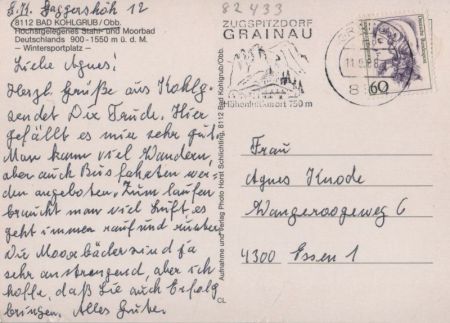 82 433
z.Zt. Jaggershöh 12
8112 BAD KOHLGRUB / Obb.
Höchstgelegenes Stahl- und Moorbad
Deutschlands 900 - 1550 m ü. d. M.
– Wintersportplatz –
Liebe Agnes!
Herzl. Grüße aus Kohlg.
sendet Dir Trude. Hier
gefällt es mir sehr gut.
Man kann viel Wandern,
aber auch Busfahrten wer-
den angeboten. Zum laufen
braucht man viel Luft, es
geht immer rauf und runter.
Die Moorbäder sind ja
sehr anstrengend, aber ich
hoffe, daß sie auch Erfolg
bringen. Alles Gute.
Aufnahme und Verlag Photo Horst Schlichting, 8112 Bad Kohlgrub/Obb.
CL
ZUGSPITZDORF
GRAINAU
Höhenluftkurort 750 m
60
Frau
Agnes Knode
Wangeroogeweg 6
4300 Essen 1